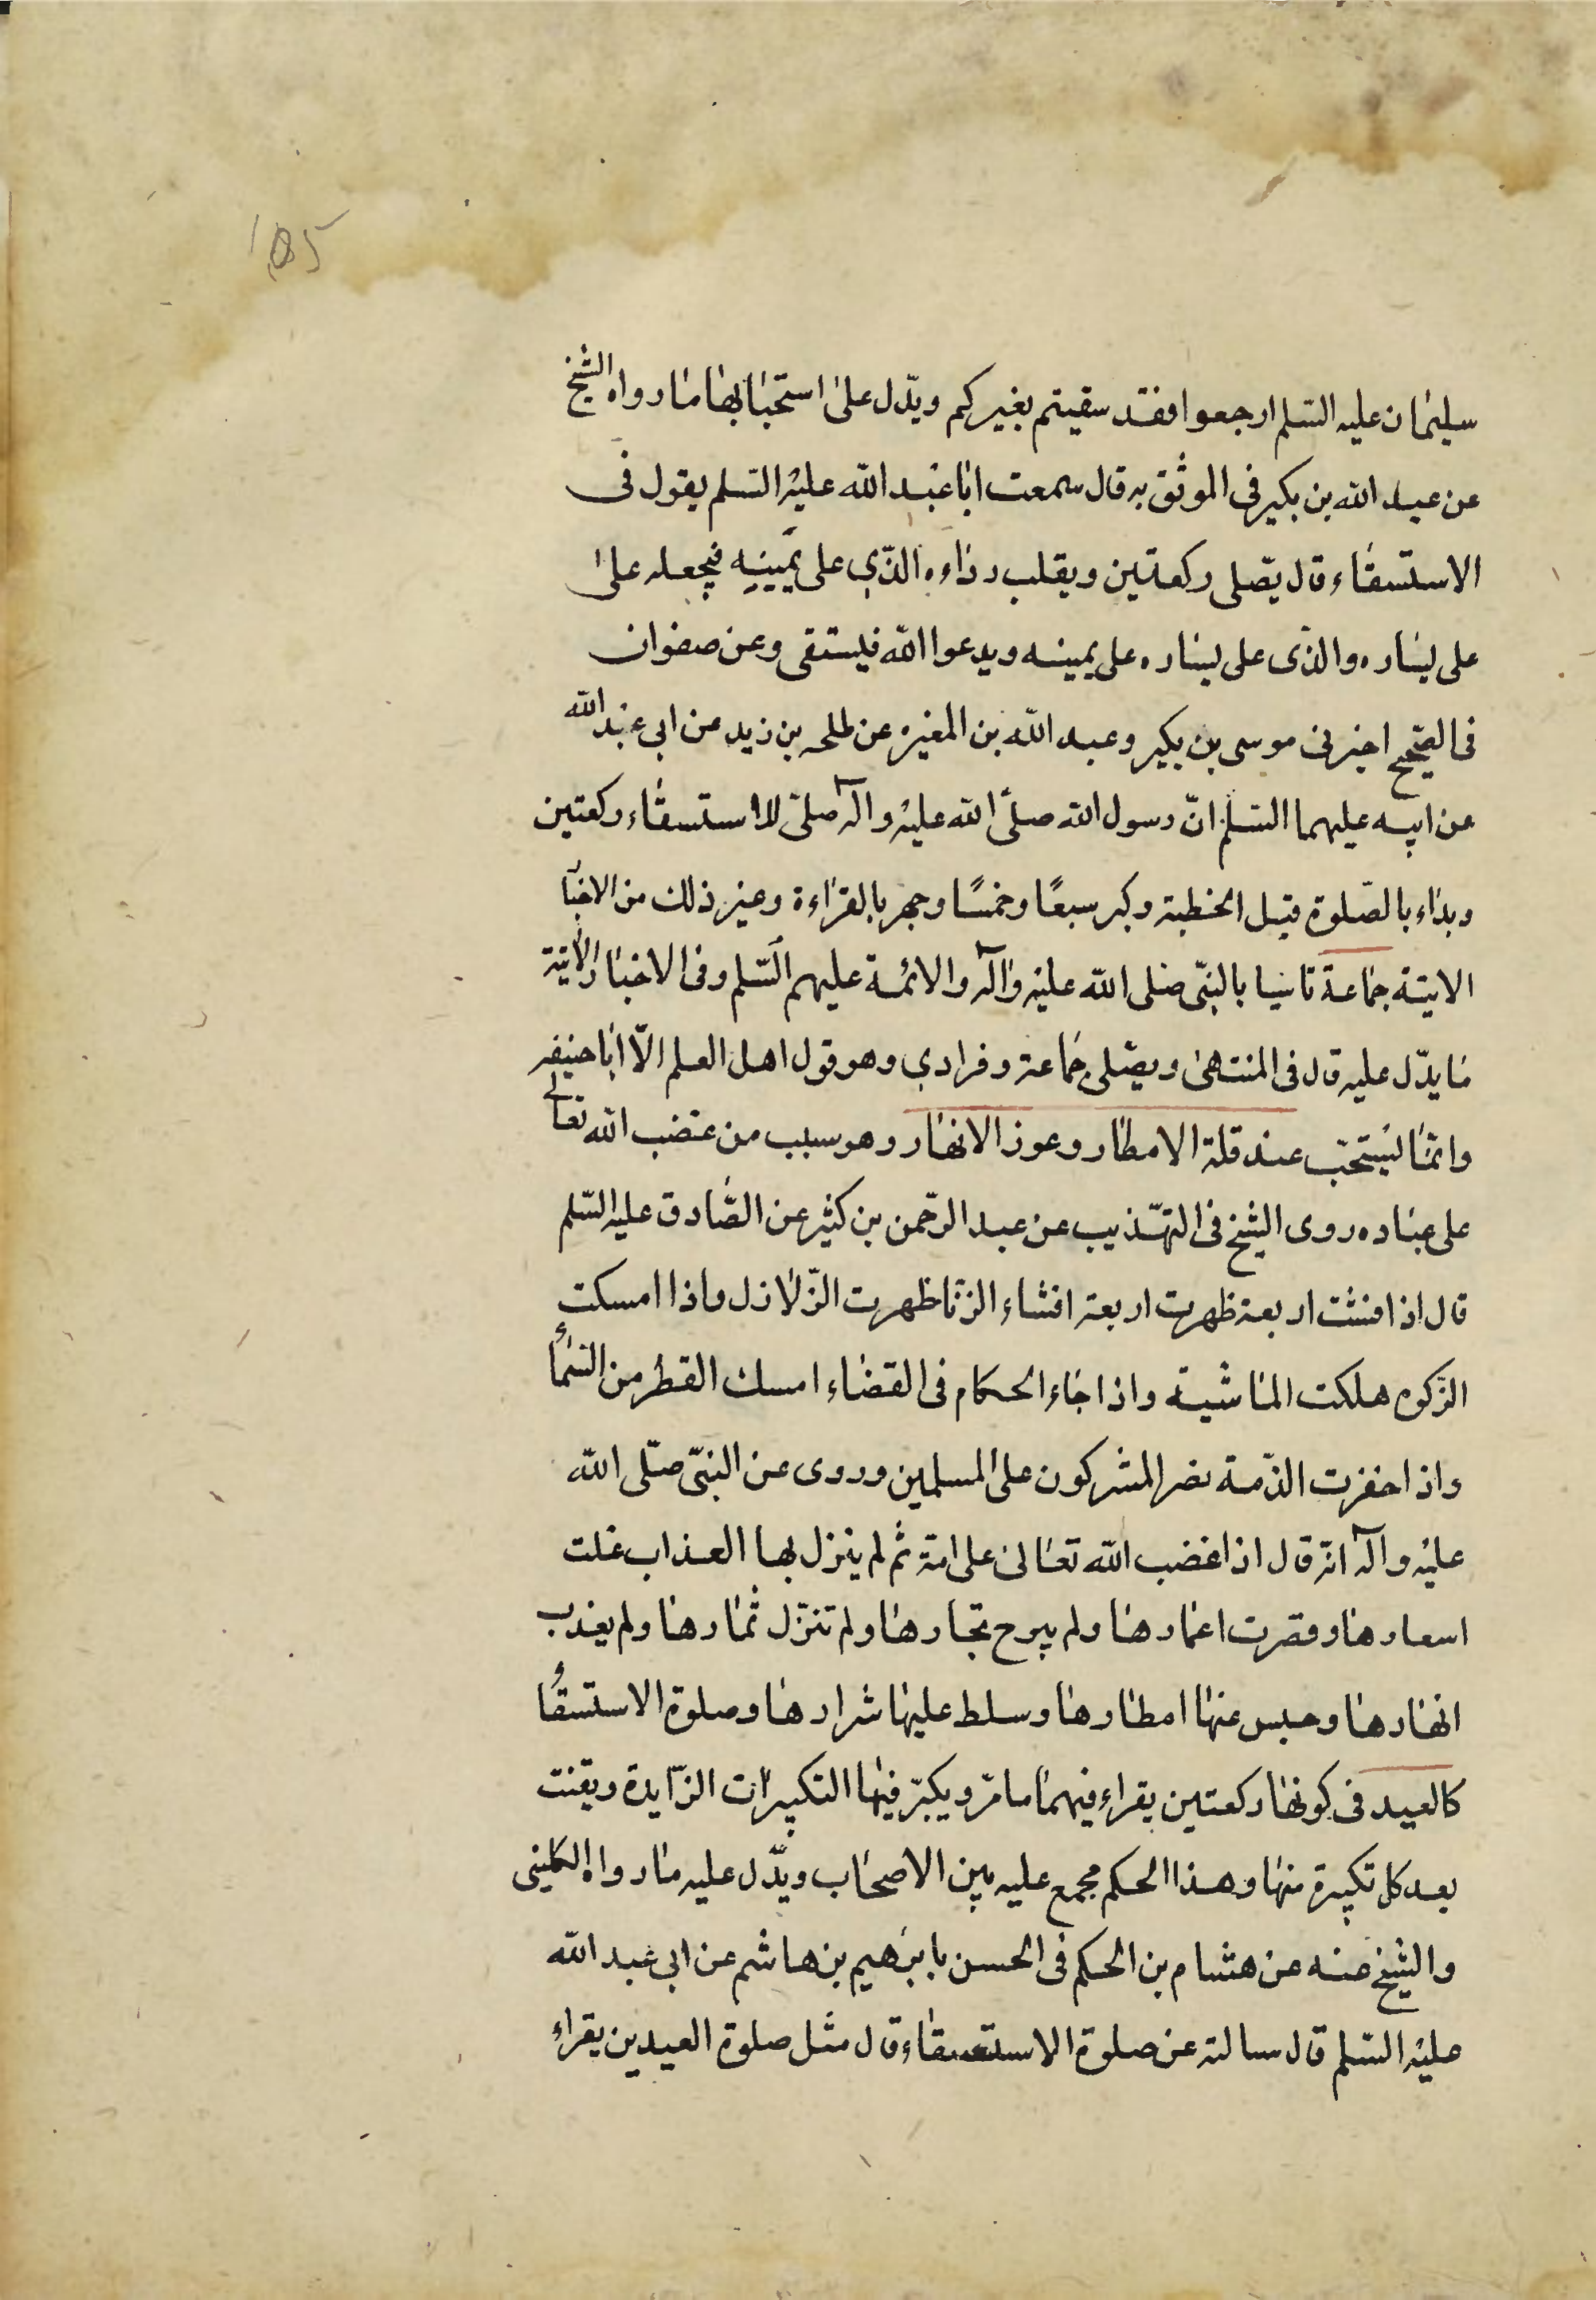 سليمان عليه السّلم ارجعوا فقد سقيتم بغيركم ويدّل على استحبابها ما رواه الشيخ
عن عبد الله بن بكير فى الموثق به قال سمعت ابا عبد الله عليه السّلم يقول فى
الاستسقاء قال يصّلى ركعتين ويقلب رداءه الذّي على يمينه فيجعله على
على يساره والذّى على يساره على يمينه ويدعوا الله فيستقى وعن صفوان
فى الصّحيح اخبرنى موسى بن بكير وعبد الله بن المغيره عن طلحه بن زيد عن ابى عبد الله
عن ابيه عليهما السّلم انّ رسول الله صلىّ الله عليه واله صلىّ للاستسقاء ركعتين
وبداء بالصّلوة قبل الخطبة وكبر سبعًا وخمسًا وجهر بالقراءة وغير ذلك من الاخبا
الاتية جماعة تاسيا بالنبّى صلى الله عليه وآله والائمة عليهم السّلم وفى الاخبار الآتية
ما يدّل عليه قال فى المنتهى ويصّلى جماعة وفرادي وهو قول اهل العلم الّا ابا حنيفه
وانمّا يستحّب عند قلة الامطار وعوز الانهار وهو سبب من غضب الله تعالى
على عباده روى الشيخ فى التهّذيب عن عبد الرّحمن بن كثير عن الصّادق عليه السّلم
قال اذا فشت اربعة ظهرت اربعة افشاء الزّنا ظهرت الزّلازل واذا امسكت
الزّكوه هلكت الماشية واذا جاء الحكام فى القضاء امسك القطر من السّماء
واذا خفرت الذّمة نصر المشركون على المسلمين وروى عن النبّى صّلى الله
عليه وآله انّه قال اذا غضب الله تعالى على امة ثم لم ينزل بها العذاب غلت
اسعارها وقصرت اعمارها ولم يربح تجارها ولم تنزّل ثمارها ولم يعذب
انهارها وحبس عنها امطارها وسلط عليها شرارها وصلوة الاستسقاء
كالعيد فى كونها ركعتين يقراء فيهما ما مرّ ويكبّر فيها التكبيرات الزّايدة ويقنت
بعد كل تكبيرة منها وهذا الحكم مجمع عليه بين الاصحاب ويدّل عليه ما رواه الكلينى
والشيخ عنه عن هشام بن الحكم فى الحسن بابرهيم بن هاشم عن ابى عبد الله
عليه السّلم قال سالته عن صلوة الاستسقاء قال مثل صلوة العيدين يقراء